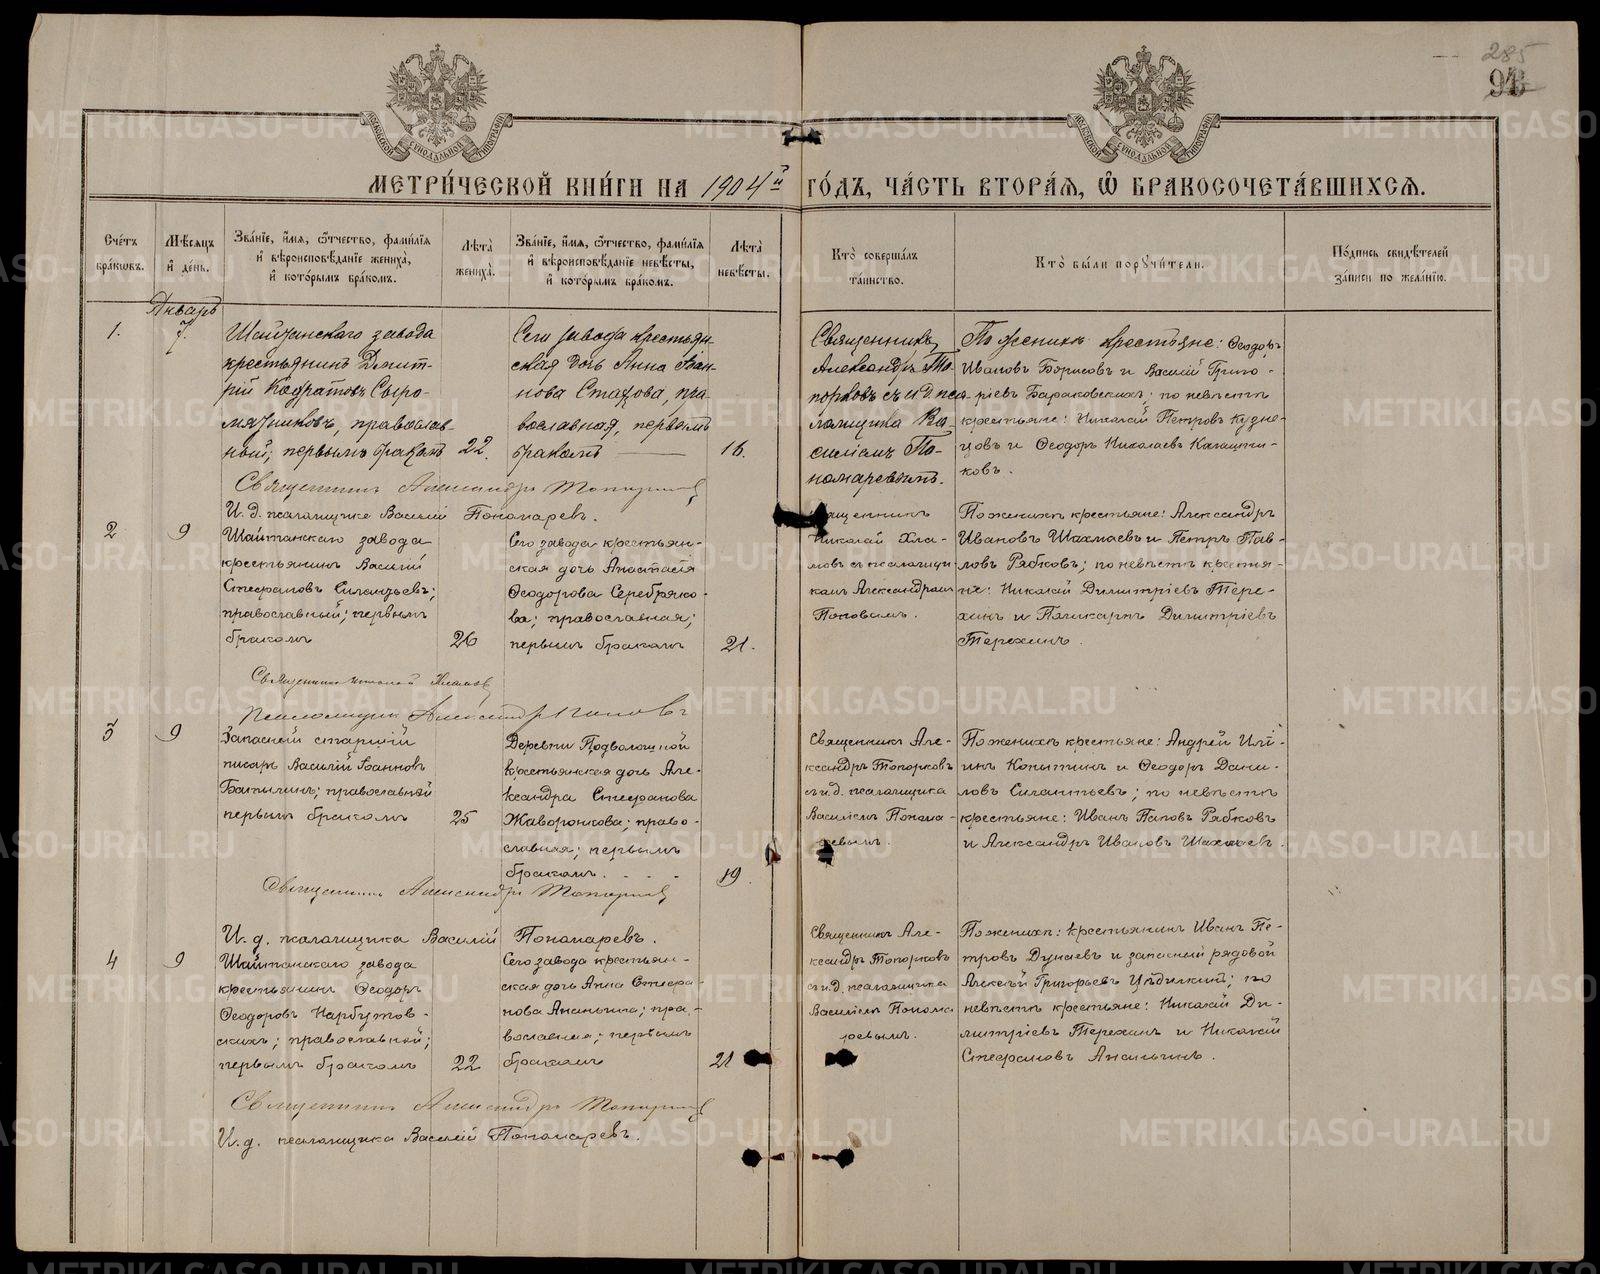 285
93
МОСКОВСКОЙ СѴНОДАЛЬНОЙ ТИПОГРАФІИ
МОСКОВСКОЙ СѴНОДАЛЬНОЙ ТИПОГРАФІИ
МЕТРИ́ЧЕСКОЙ КНИ́ГИ НА 1904й ГО́ДЪ, ЧА́СТЬ ВТОРА́Я, Ѡ БРАКОСОЧЕТА́ВШИХСЯ.
Сче́тъ
бра́ковъ.
Мѣ́сяцъ
и де́нь.
Зва́ніе, и́мя, о́тчество, фами́лія
и вѣроисповѣ́даніе жениха̀,
и кото́рымъ бра́комъ.
Лѣта̀
жениха̀.
Зва́ніе, и́мя, о́тчество, фами́лія
и вѣроисповѣ́даніе невѣ́сты,
и кото́рымъ бра́комъ.
Лѣта̀
невѣ́сты.
Кто̀ соверша́лъ
та́инство.
Кто̀ бы́ли поручи́тели.
По́дпись свидѣ́телей
за́писи по жела́нію.
Январь
1.
7.
Шайтанскаго завода
крестьянинъ Димит-
рій Кодратовъ Сыро-
мятниковъ, православ-
ный; первымъ бракомъ
22.
Сего завода крестьян-
ская дочь Анна Іоан-
нова Стахова, пра-
вославная, первымъ
бракомъ
16.
Священникъ
Александръ То-
порковъ съ и д пса-
ломщика Ва-
силіемъ По-
номаревымъ.
По женихѣ крестьяне: Ѳеодоръ
Ивановъ Борисовъ и Василій Григо-
ріевъ Бараковскихъ; по невѣстѣ
крестьяне: Николай Петровъ Кузне-
цовъ и Ѳеодоръ Николаевъ Калашни-
ковъ.
Священникъ Александръ Топорковъ
И. д. псаломщика Василій Пономаревъ.
2
9
Шайтанскаго завода
крестьянинъ Василій
Стефановъ Силантьевъ;
православный; первымъ
бракомъ
26
Сего завода крестьян-
ская дочь Анастасія
Ѳеодорова Серебряко-
ва; православная;
первымъ бракомъ
21.
Священникъ
Николай Хла-
мовъ съ псаломщи
комъ Александромъ
Поповымъ.
По женихѣ крестьяне: Александръ
Ивановъ Шахмаевъ и Петръ Пав-
ловъ Рябковъ; по невѣстѣ крестья-
не: Николай Димитріевъ Тере-
хинъ и Поликарпъ Димитріевъ
Терехинъ.
Священникъ Николай Хламовъ
Псаломщикъ Александръ Поповъ
3
9
Запасный старшій
писарь Василій Іоанновъ
Батылинъ; православный
первымъ бракомъ
25
Деревни Подволошной
крестьянская дочь Але-
ксандра Стефанова
Жаворонкова; право-
славная; первымъ
бракомъ.
19.
Священникъ Але-
ксандръ Топорковъ
съ и.д. псаломщика
Василіемъ Понома-
ревымъ.
По женихѣ крестьяне: Андрей Иль-
инъ Копытинъ и Ѳеодоръ Дани-
ловъ Силантьевъ; по невѣстѣ
крестьяне: Иванъ Павловъ Рябковъ
и Александръ Ивановъ Шахмаевъ.
Священникъ Александръ Топорковъ
И. д. псаломщика Василій Пономаревъ.
4
9
Шайтанскаго завода
крестьянинъ Ѳеодоръ
Ѳеодоровъ Нарбутов-
скихъ; православный;
первымъ бракомъ
22
Сего завода крестьян-
ская дочь Анна Стефа-
нова Ананьина; пра-
вославная; первымъ
бракомъ
21
Священникъ Але-
ксандръ Топорковъ
съ и.д. псаломщика
Василіемъ Понома
ревымъ.
По женихѣ: крестьянинъ Иванъ Пе-
тровъ Дунаевъ и запасный рядовой
Алексѣй Григорьевъ по
невѣстѣ крестьяне: Николай Ди-
митріевъ Терехинъ и Николай
Стефановъ Ананьинъ.
Священникъ Александръ Топорковъ
И. д. псаломщика Василій Пономаревъ.
METRIKI.GASO-URAL.RU